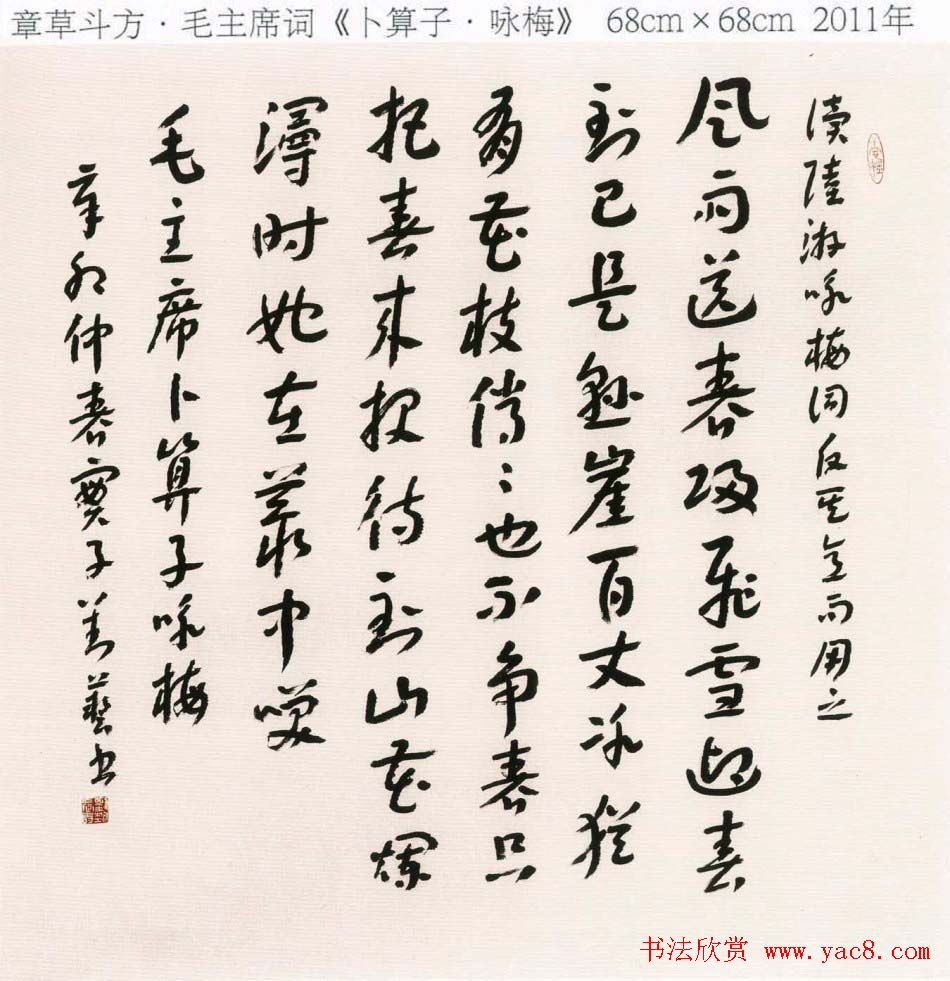 章草斗方·毛主席词《卜算子·咏梅》 68cm×68cm 2011年
读陸游咏梅词反其意而用之
风雨送春歸飛雪迎春
到已是懸崖百丈冰犹
有花枝俏々也不争春只
把春來报待到山花爛
漫时她在叢中笑
毛主席卜算子咏梅
辛卯仲春子藝书
书法欣赏 www.yac8.com